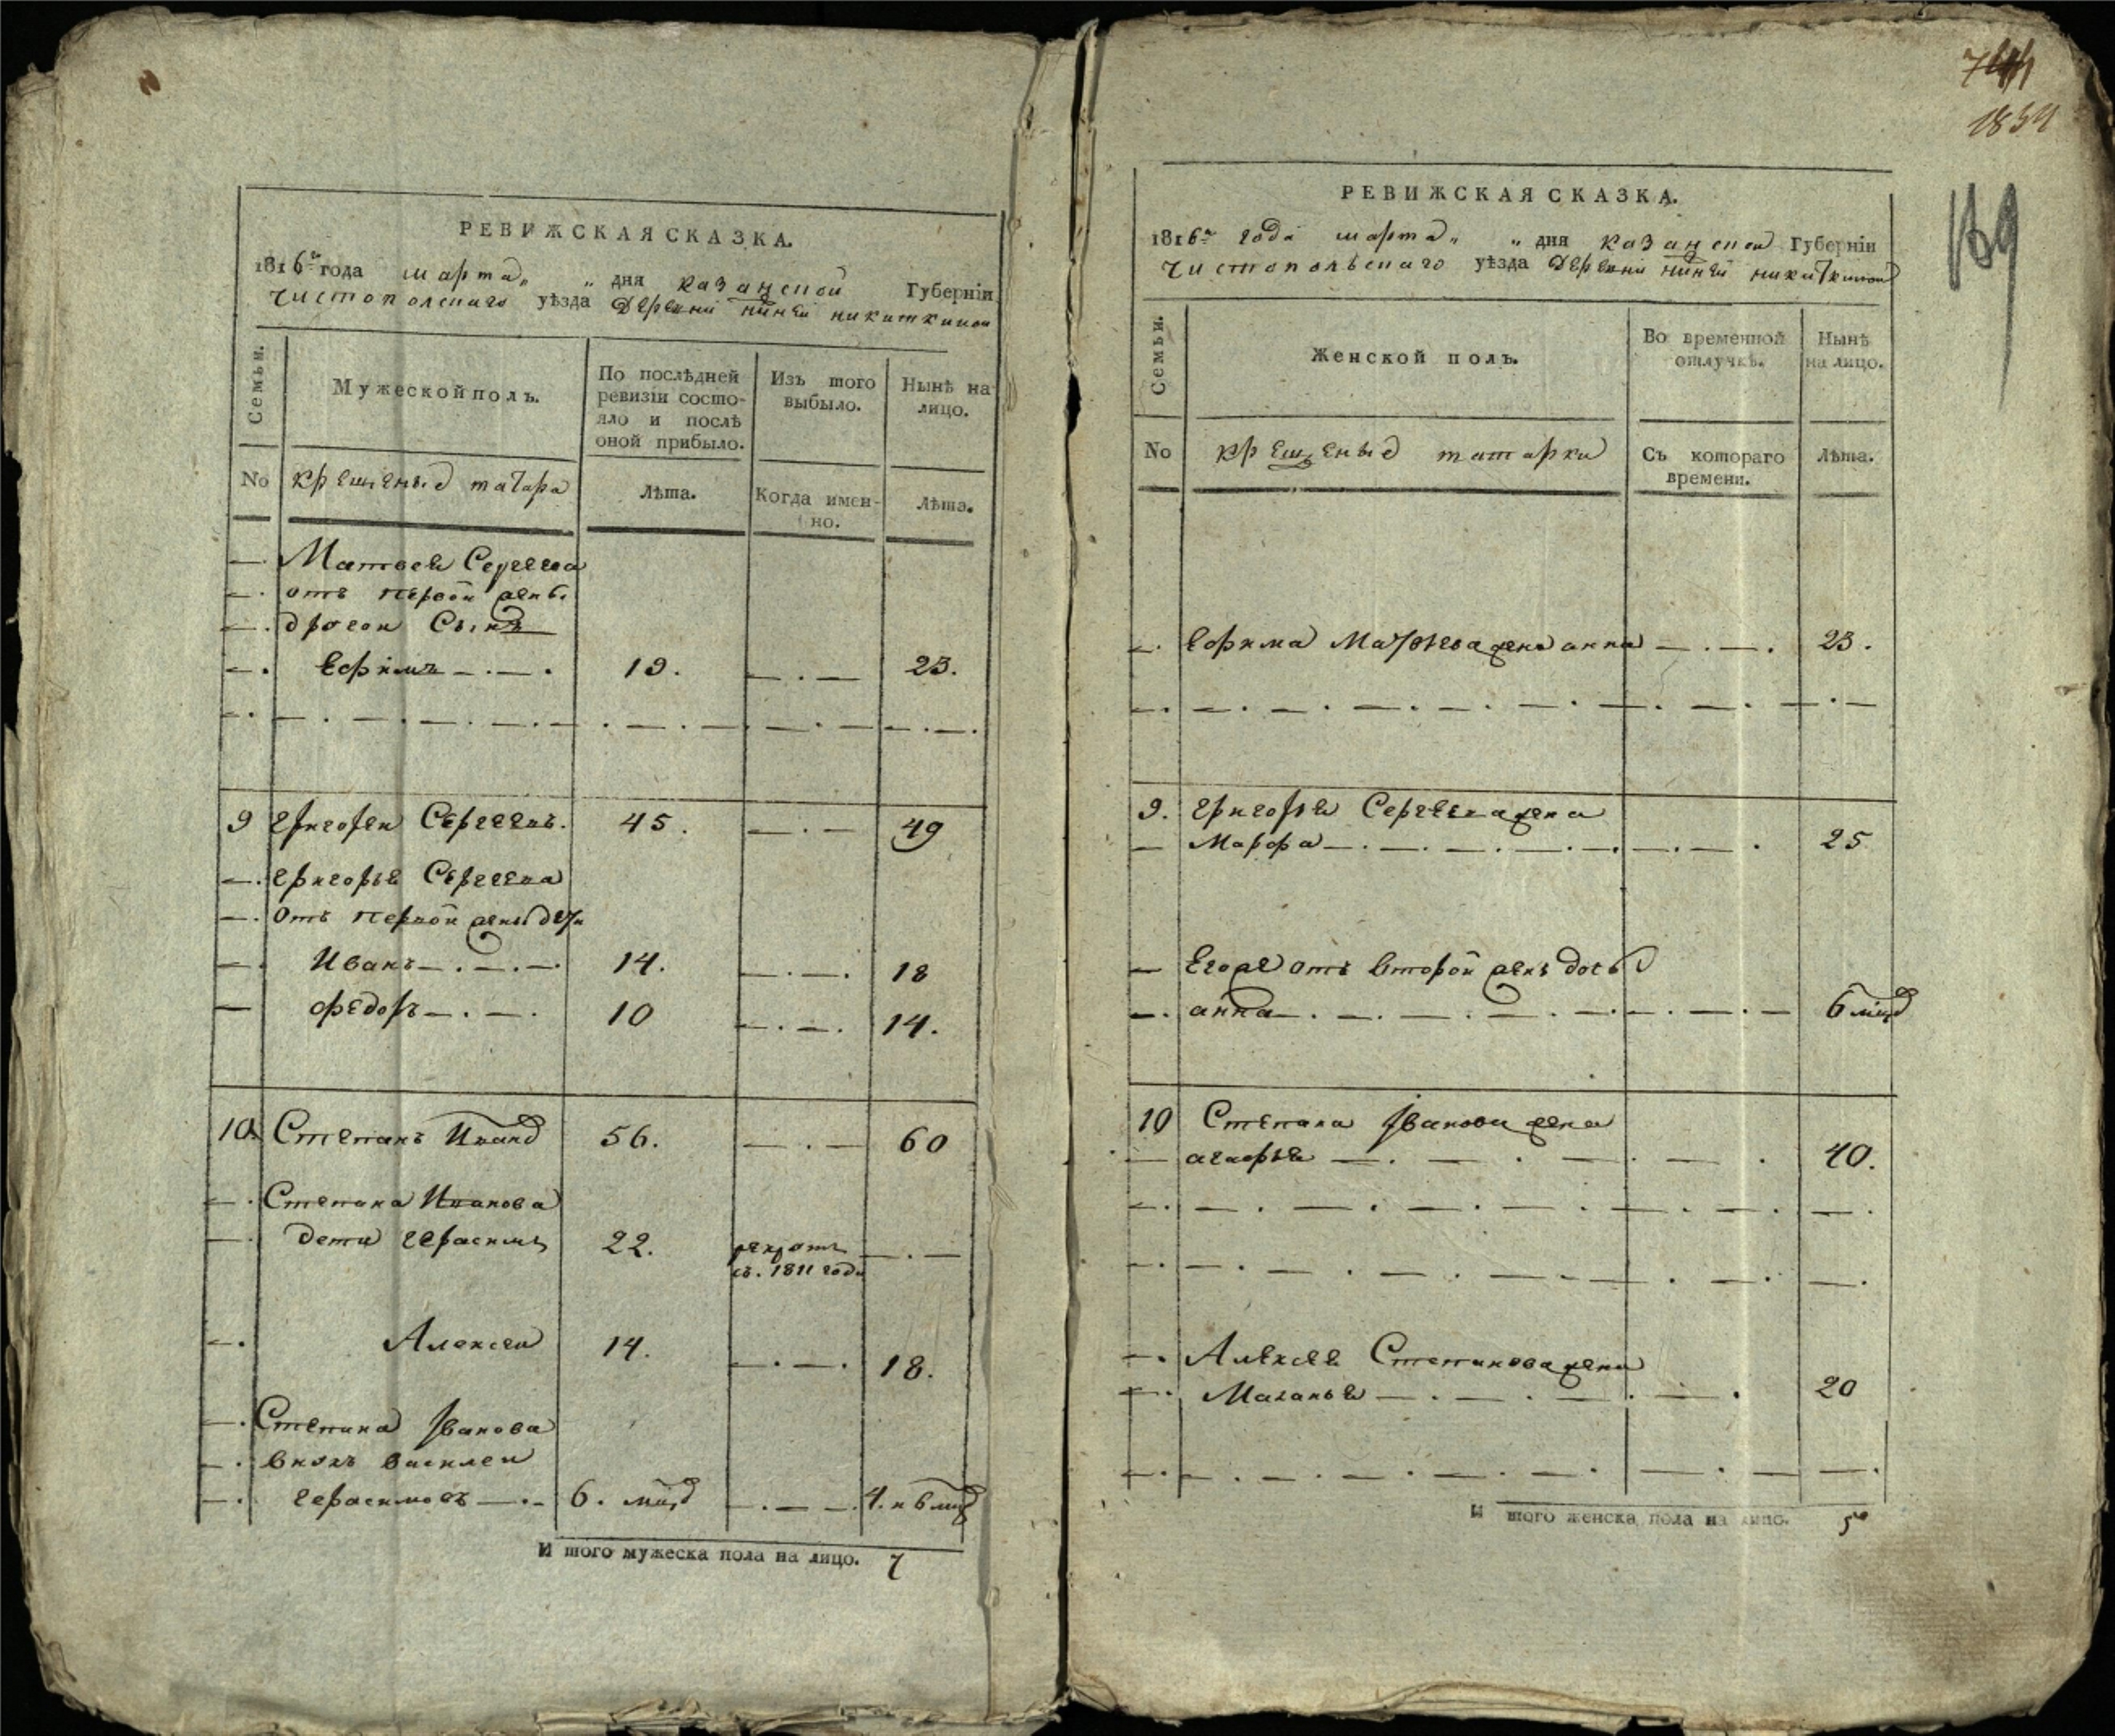 РЕВИЖСКАЯ СКАЗКА.
1816го года марта „ „ дня казанской Губерніи
Чистополскаго уѣзда Деревни никиткиной
Семьи.
Мужеской полъ.
По послѣдней ревизіи состояло и послѣ оной прибыло.
Изъ того выбыло.
Нынѣ на лицо.
No
крещеные татара
Лѣта.
Когда именно.
Лѣта.
Матвея Сергеева
отъ первой жены
другой Сынъ
Ефимъ 19. 23.
9 Григорей Сергеевъ. 45. 49
Григорья Сергеева
Отъ первой жены дети
Иванъ 14. 18
Федоръ 10 14.
10. Степанъ Иванов 56. 60
Степана Иванова
дети Герасимъ 22. рекрутъ
въ. 1811 году
Алексеи 14. 18.
Степана Иванова
внукъ василеи
Герасимовъ 6. 4. и 6
И того мужеска пола на лицо. 7
1834
159
РЕВИЖСКАЯ СКАЗКА.
1816го года марта „ „ дня казанской Губерніи
Чистопольскаго уѣзда Деревни никиткиной
Семьи.
Женской полъ.
Во временной отлучкѣ.
Нынѣ на лицо.
No
крещеные татарки
Съ котораго времени.
Лѣта.
Ефима Матвѣева жена анна 23.
9. Григорья Сергеева жена
Марфа 25
Егоже отъ второй жены дочь
анна 6
10 Степана Иванова жена
агафья 40.
Алексея Степанова жена
Маланья 20
И того женска пола на лицо. 5